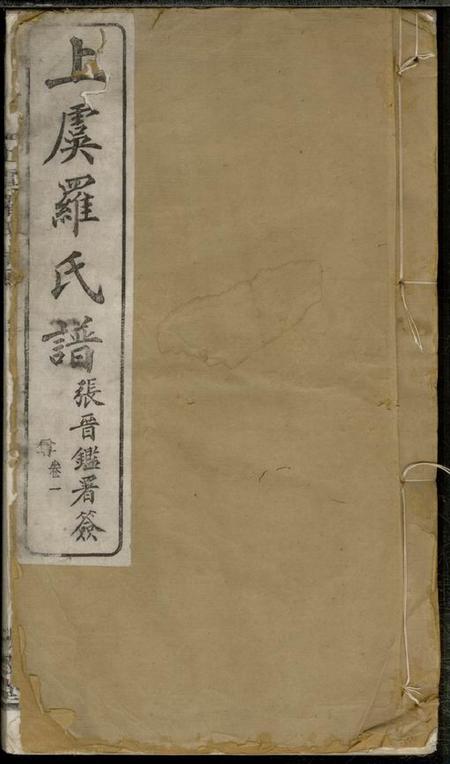 上虞羅氏譜
張晉鑑署簽
卷一